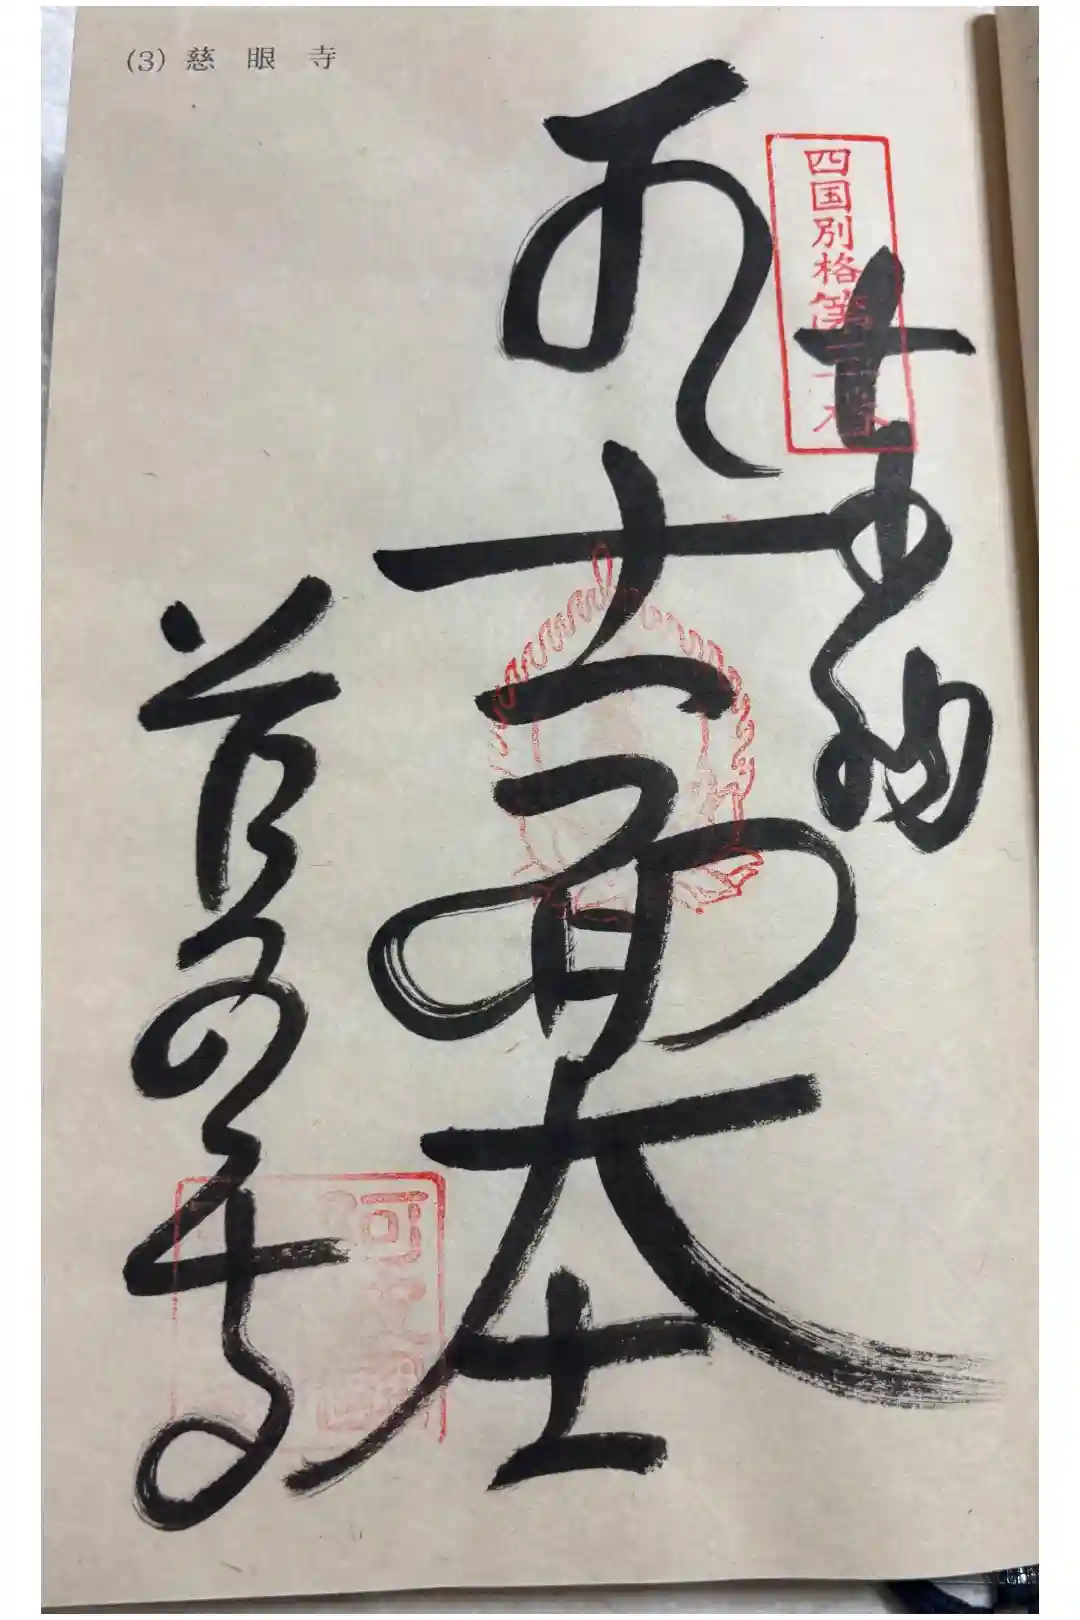 (3) 慈眼寺
四国別格第三番
奉納
十一面大士
慈眼寺